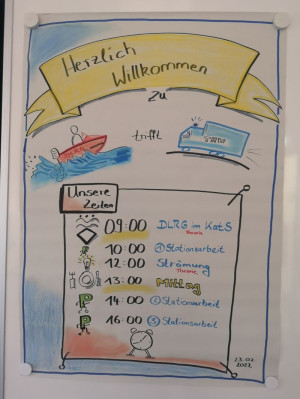 Herzlich
Willkommen
zu
trifft
Unsere
Zeiten
09:00 DLRG im KatS
Theorie
10:00 ① Stationsarbeit
12:00 Strömung
Theorie
13:00 Mittag
14:00 ② Stationsarbeit
16:00 ③ Stationsarbeit
23.07.
2022